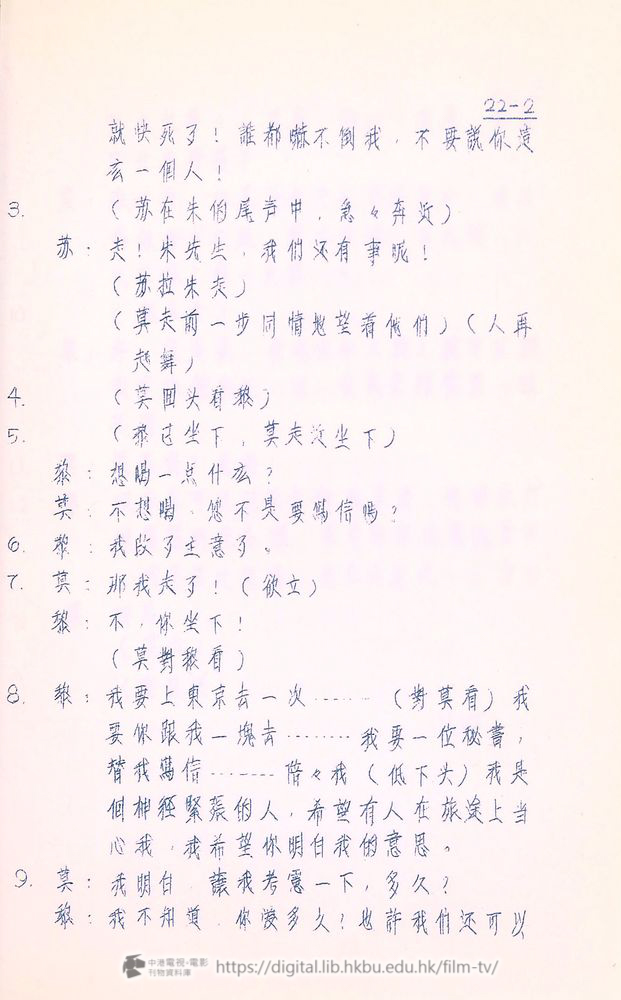 22-2
就快死了！誰都嚇不倒我，不要說你這
么一個人！
3. （苏在朱的尾声中，急々奔近）
苏：走！朱先生，我們还有事呢！
（苏拉朱走）
（莫走前一步同情地望着他們）（人再
起舞）
4. （莫回头看黎）
5. （黎已坐下，莫走近坐下）
黎：想喝一点什么？
莫：不想喝，您不是要寫信嗎？
6. 黎：我改了主意了。
7. 莫：那我走了！（欲立）
黎：不，你坐下！
（莫對黎看）
8. 黎：我要上東京去一次……（對莫看）我
要你跟我一塊去……我要一位秘書，
替我寫信……陪々我（低下头）我是
個神經緊張的人，希望有人在旅途上当
心我，我希望你明白我的意思。
9. 莫：我明白，讓我考慮一下，多久？
黎：我不知道，你要多久？也許我們还可以
中港電視·電影
刊物資料庫
https://digital.lib.hkbu.edu.hk/film-tv/